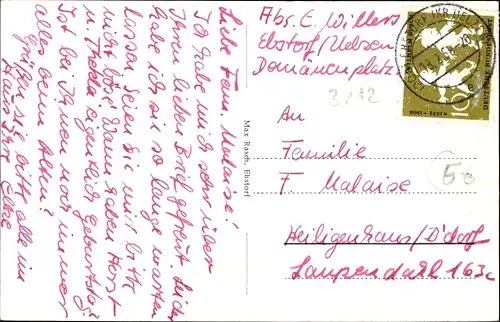 Liebe Fam. Malaise!
Ich habe mich sehr über
Ihren lieben Brief gefreut. Leider
habe ich Sie so lange warten
lassen. Seien Sie mir bitte
nicht böse. Wann haben Horst
u. Thea eigentlich Geburtstag?
Ist bei Ihnen noch immer
alles beim Alten?
Grüßen Sie bitte alle von
Elke
Max Rasch, Ebstorf
Abs. E. Willers
Ebstorf/Uelzen
Domänenplatz
3/12
DEUTSCHE BUNDESPOST
10
An
Familie
F. Malaise
50
Heiligenhaus/D'dorf
Laupendahl 163c